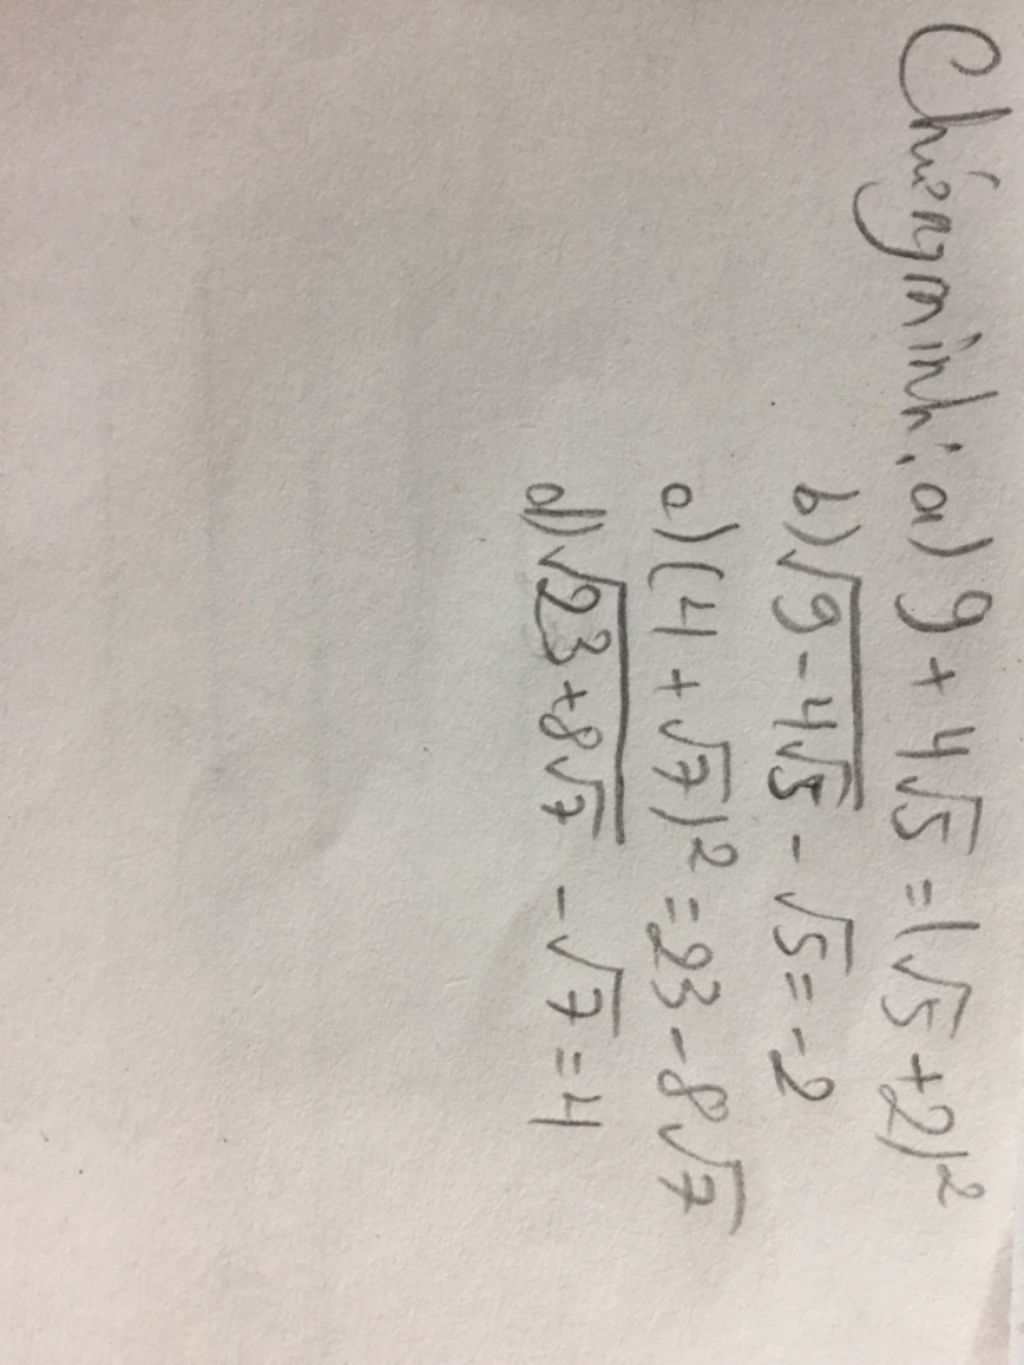 Chứng minh: a) 9 + 4√5 = (√5 + 2)²
b) √(9 - 4√5) - √5 = -2
c) (4 + √7)² = 23 - 8√7
d) √(23 + 8√7) - √7 = 4